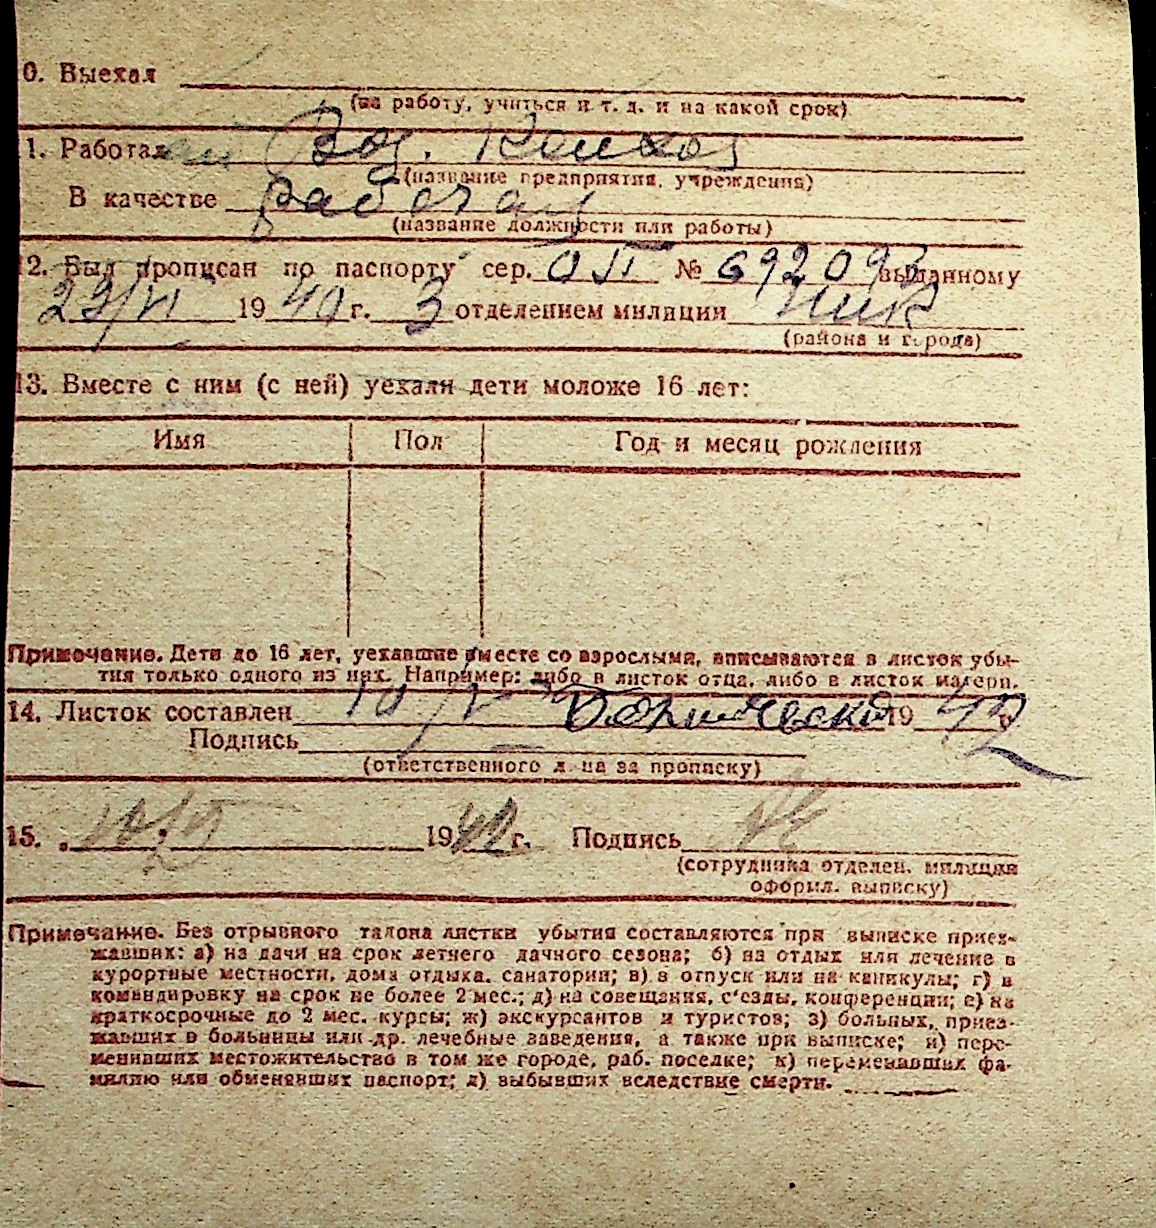 0. Выехал
(на работу, учиться и т. д. и на какой срок)
1. Работал
(название предприятия, учреждения)
В качестве
(название должности или работы)
12. Был прописан по паспорту сер. № 692093 выданному
23/VI 1940 г. 3 отделением милиции
(района и города)
13. Вместе с ним (с ней) уехали дети моложе 16 лет:
Имя Пол Год и месяц рождения
Примечание. Дети до 16 лет, уехавшие вместе со взрослыми, вписываются в листок убы-
тия только одного из них. Например: либо в листок отца, либо в листок матери.
14. Листок составлен 10/V 1942 г.
Подпись
(ответственного лица за прописку)
15. 1942 г. Подпись
(сотрудника отделен. милиции
оформл. выписку)
Примечание. Без отрывного талона листки убытия составляются при выписке приез-
жавших: а) на дачи на срок летнего дачного сезона; б) на отдых или лечение в
курортные местности, дома отдыха, санатории; в) в отпуск или на каникулы; г) в
командировку на срок не более 2 мес.; д) на совещания, с'езды, конференции; е) на
краткосрочные до 2 мес. курсы; ж) экскурсантов и туристов; з) больных, приез-
жавших в больницы или др. лечебные заведения, а также при выписке; и) пере-
менивших местожительство в том же городе, раб. поселке; к) переменявших фа-
милию или обменявших паспорт; л) выбывших вследствие смерти.